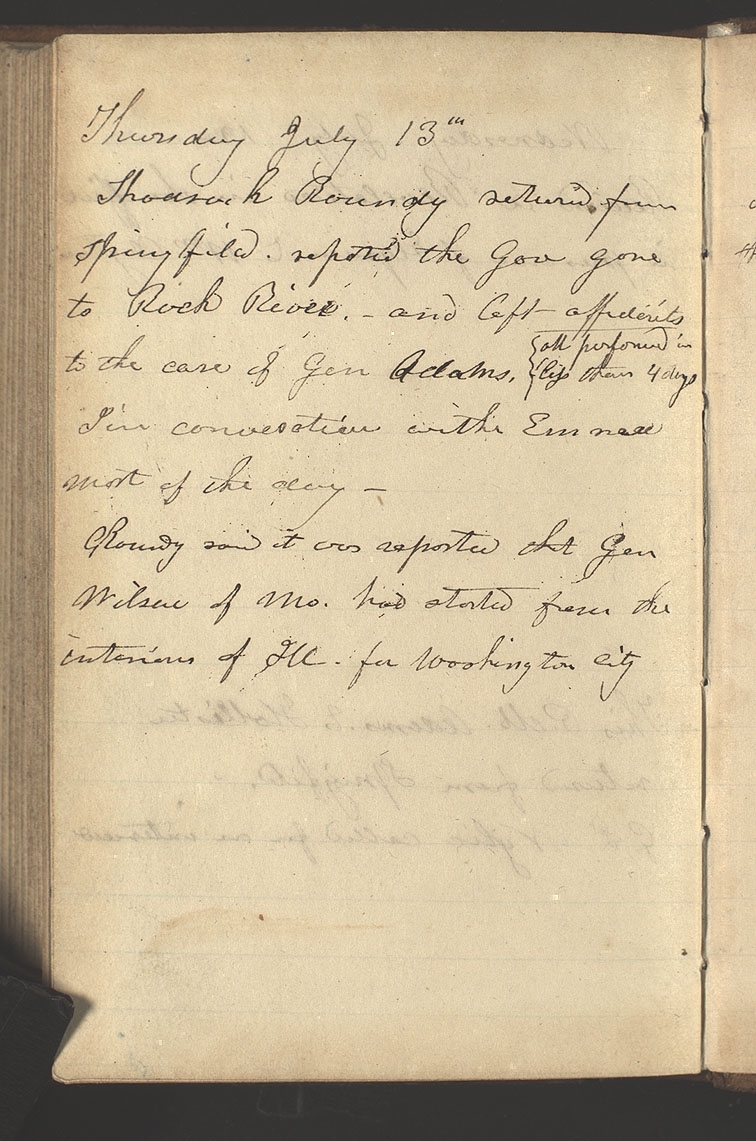 Thursday July 13th
Shadrach Roundy returnd from
Springfild. reportd the Gov gone
to Rock River. - and left affidavits
to the care of Gen Adams. {all performed in
less than 4 days
I in conversation with Emma
most of the day -
Roundy said it was reported that Gen
Wilson of Mo. had started from the
interior of Ill. for Washington City